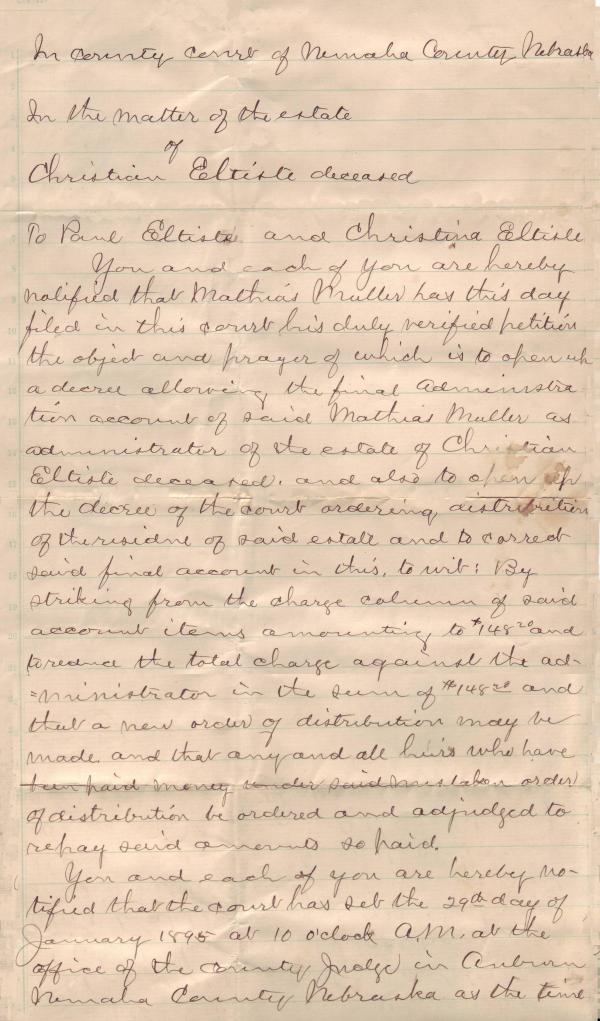 In county court of Nemaha County Nebraska
In the matter of the estate
of
Christian Eltiste deceased
To Paul Eltiste and Christina Eltiste
You and each of you are hereby
notified that Mathias Muller has this day
filed in this court his duly verified petition
the object and prayer of which is to open up
a decree allowing the final administra-
tion account of said Mathias Muller as
administrator of the estate of Christian
Eltiste deceased. and also to open up
the decree of the court ordering distribution
of the residue of said estate and to correct
said final account in this, to wit: By
striking from the charge column of said
account items amounting to $148 20 and
to reduce the total charge against the ad=
=ministrator in the sum of $148 20 and
that a new order of distribution may be
made and that any and all heirs who have
been paid money under said mistaken order
of distribution be ordered and adjudged to
repay said amounts so paid.
You and each of you are hereby no-
tified that the court has set the 29th day of
January 1895 at 10 o'clock A.M. at the
office of the county Judge in Auburn
Nemaha County Nebraska as the time